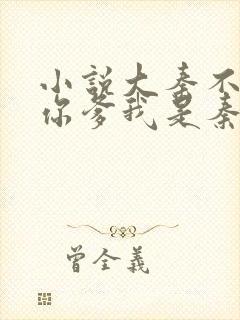 小说大秦不
你爹我是秦
曾全義